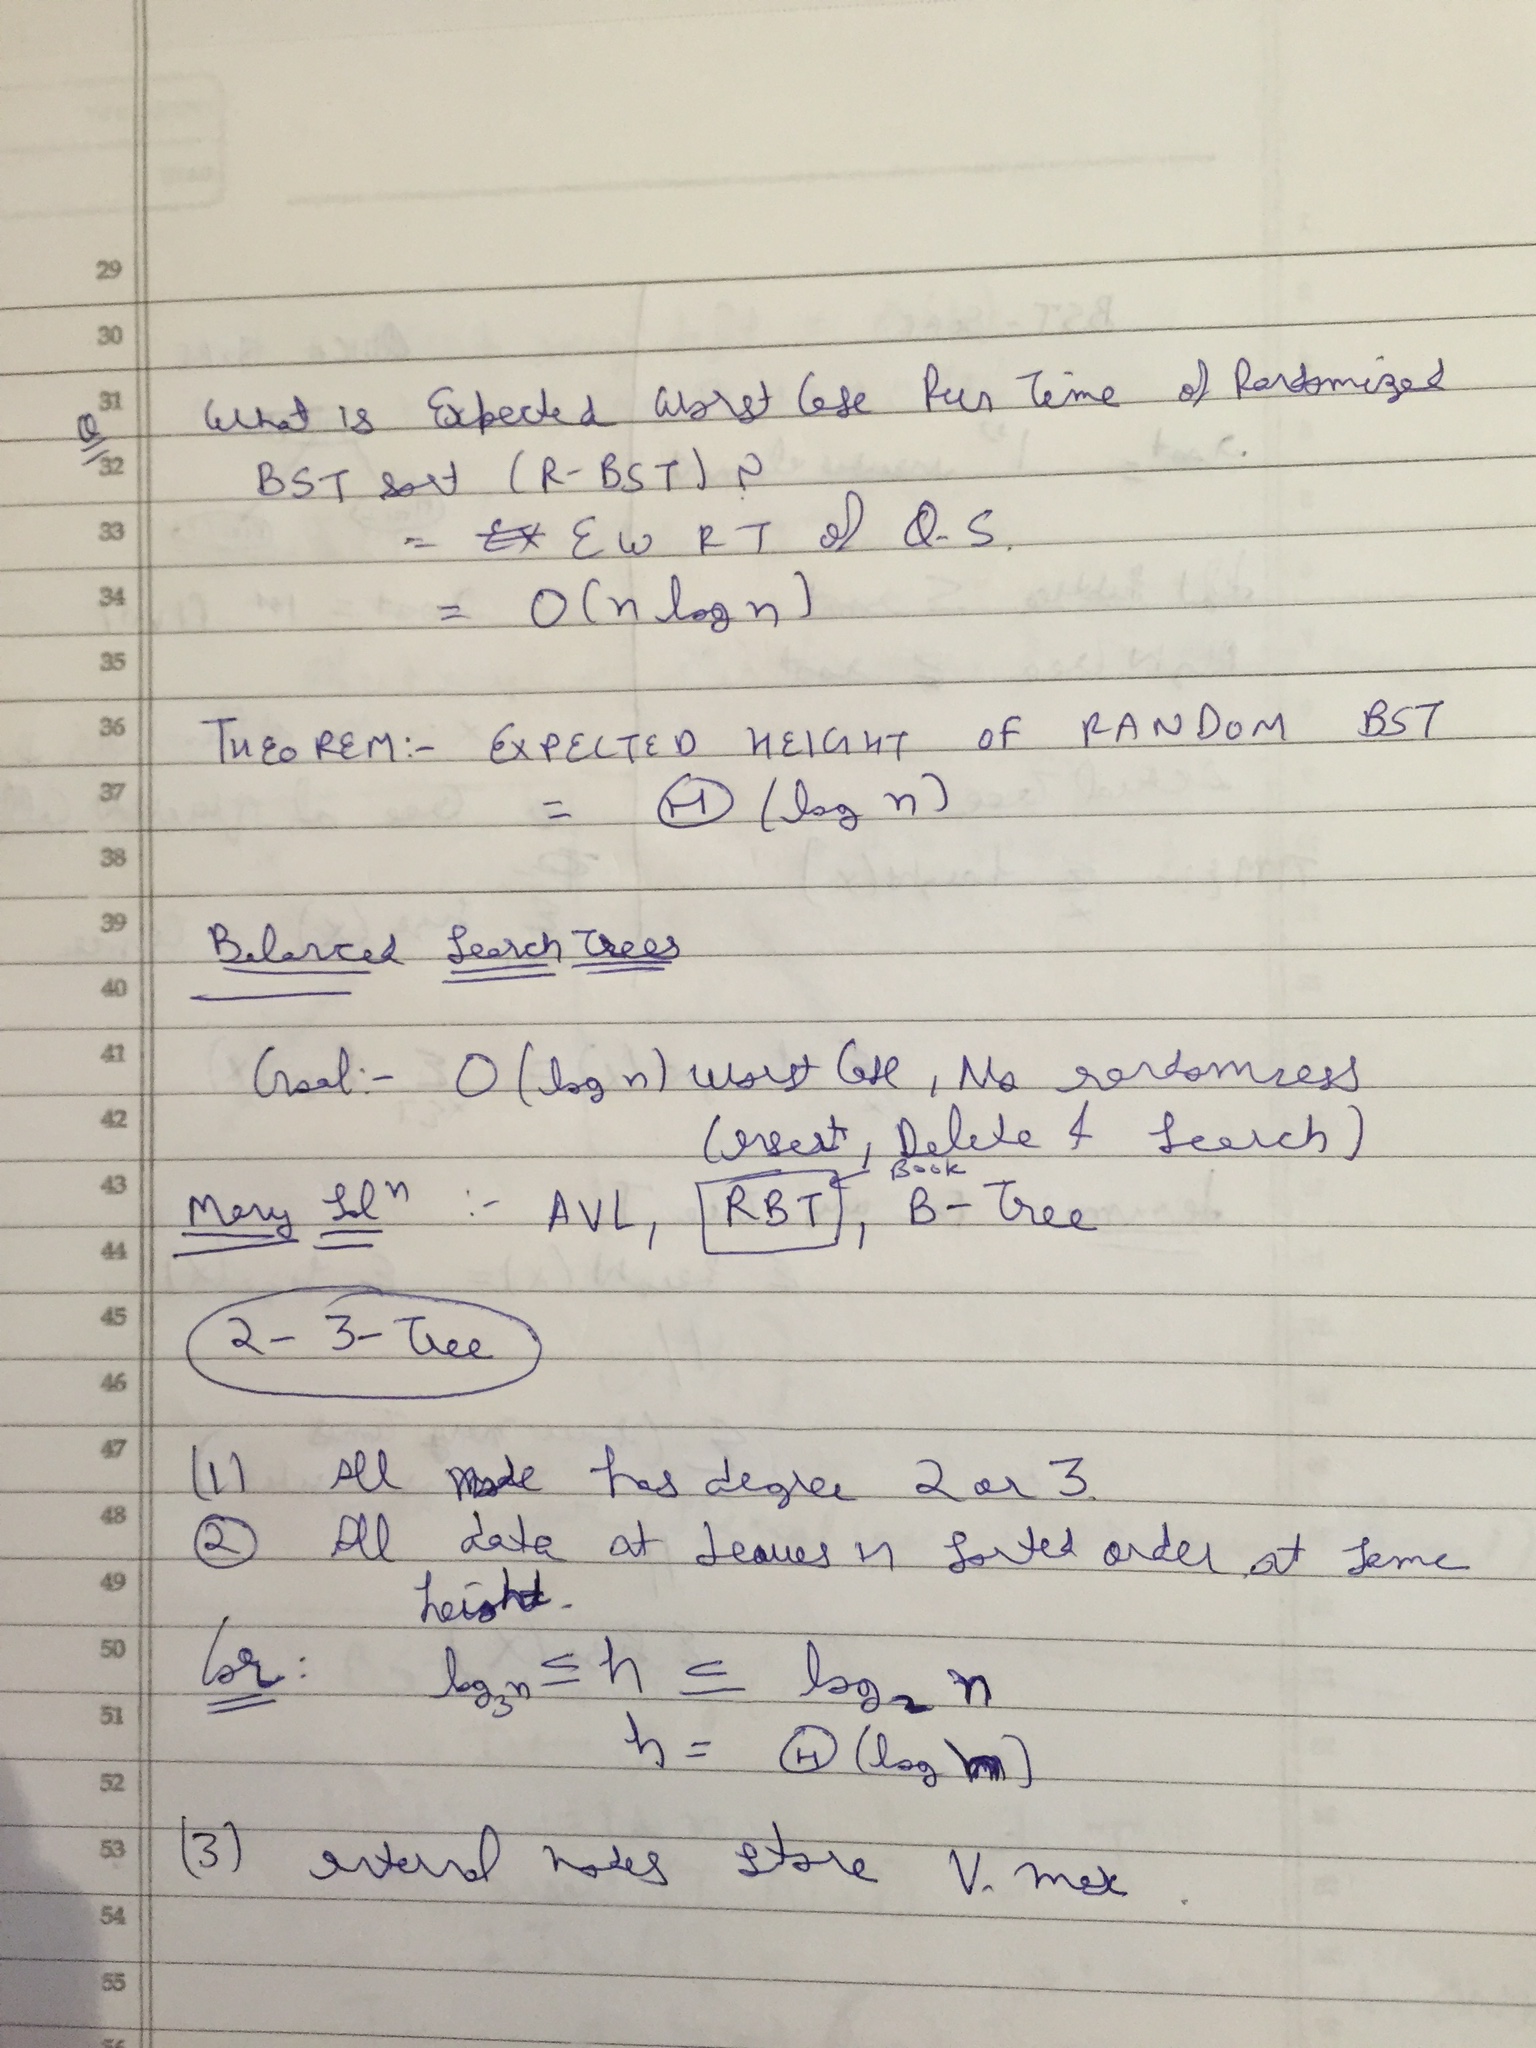 29
30
31
Q
What is Expected Worst Case Run Time of Randomized
32
BST sort (R-BST) ?
33
= E W R T of Q.S.
34
= O(n log n)
35
36
THEOREM:- EXPECTED HEIGHT OF RANDOM BST
37
= Θ (log n)
38
39
Balanced Search Trees
40
41
Goal:- O(log n) worst Case, No randomness
42
(Insert, Delete & Search)
Book
43
Many Solⁿ :- AVL, RBT, B-Tree
44
45
2-3-Tree
46
47
(1) All node has degree 2 or 3.
48
② All data at leaves in sorted order at same
49
height.
50
Cor: log₃n ≤ h ≤ log₂ n
51
h = Θ (log n)
52
53
(3) internal nodes store V. max.
54
55
56